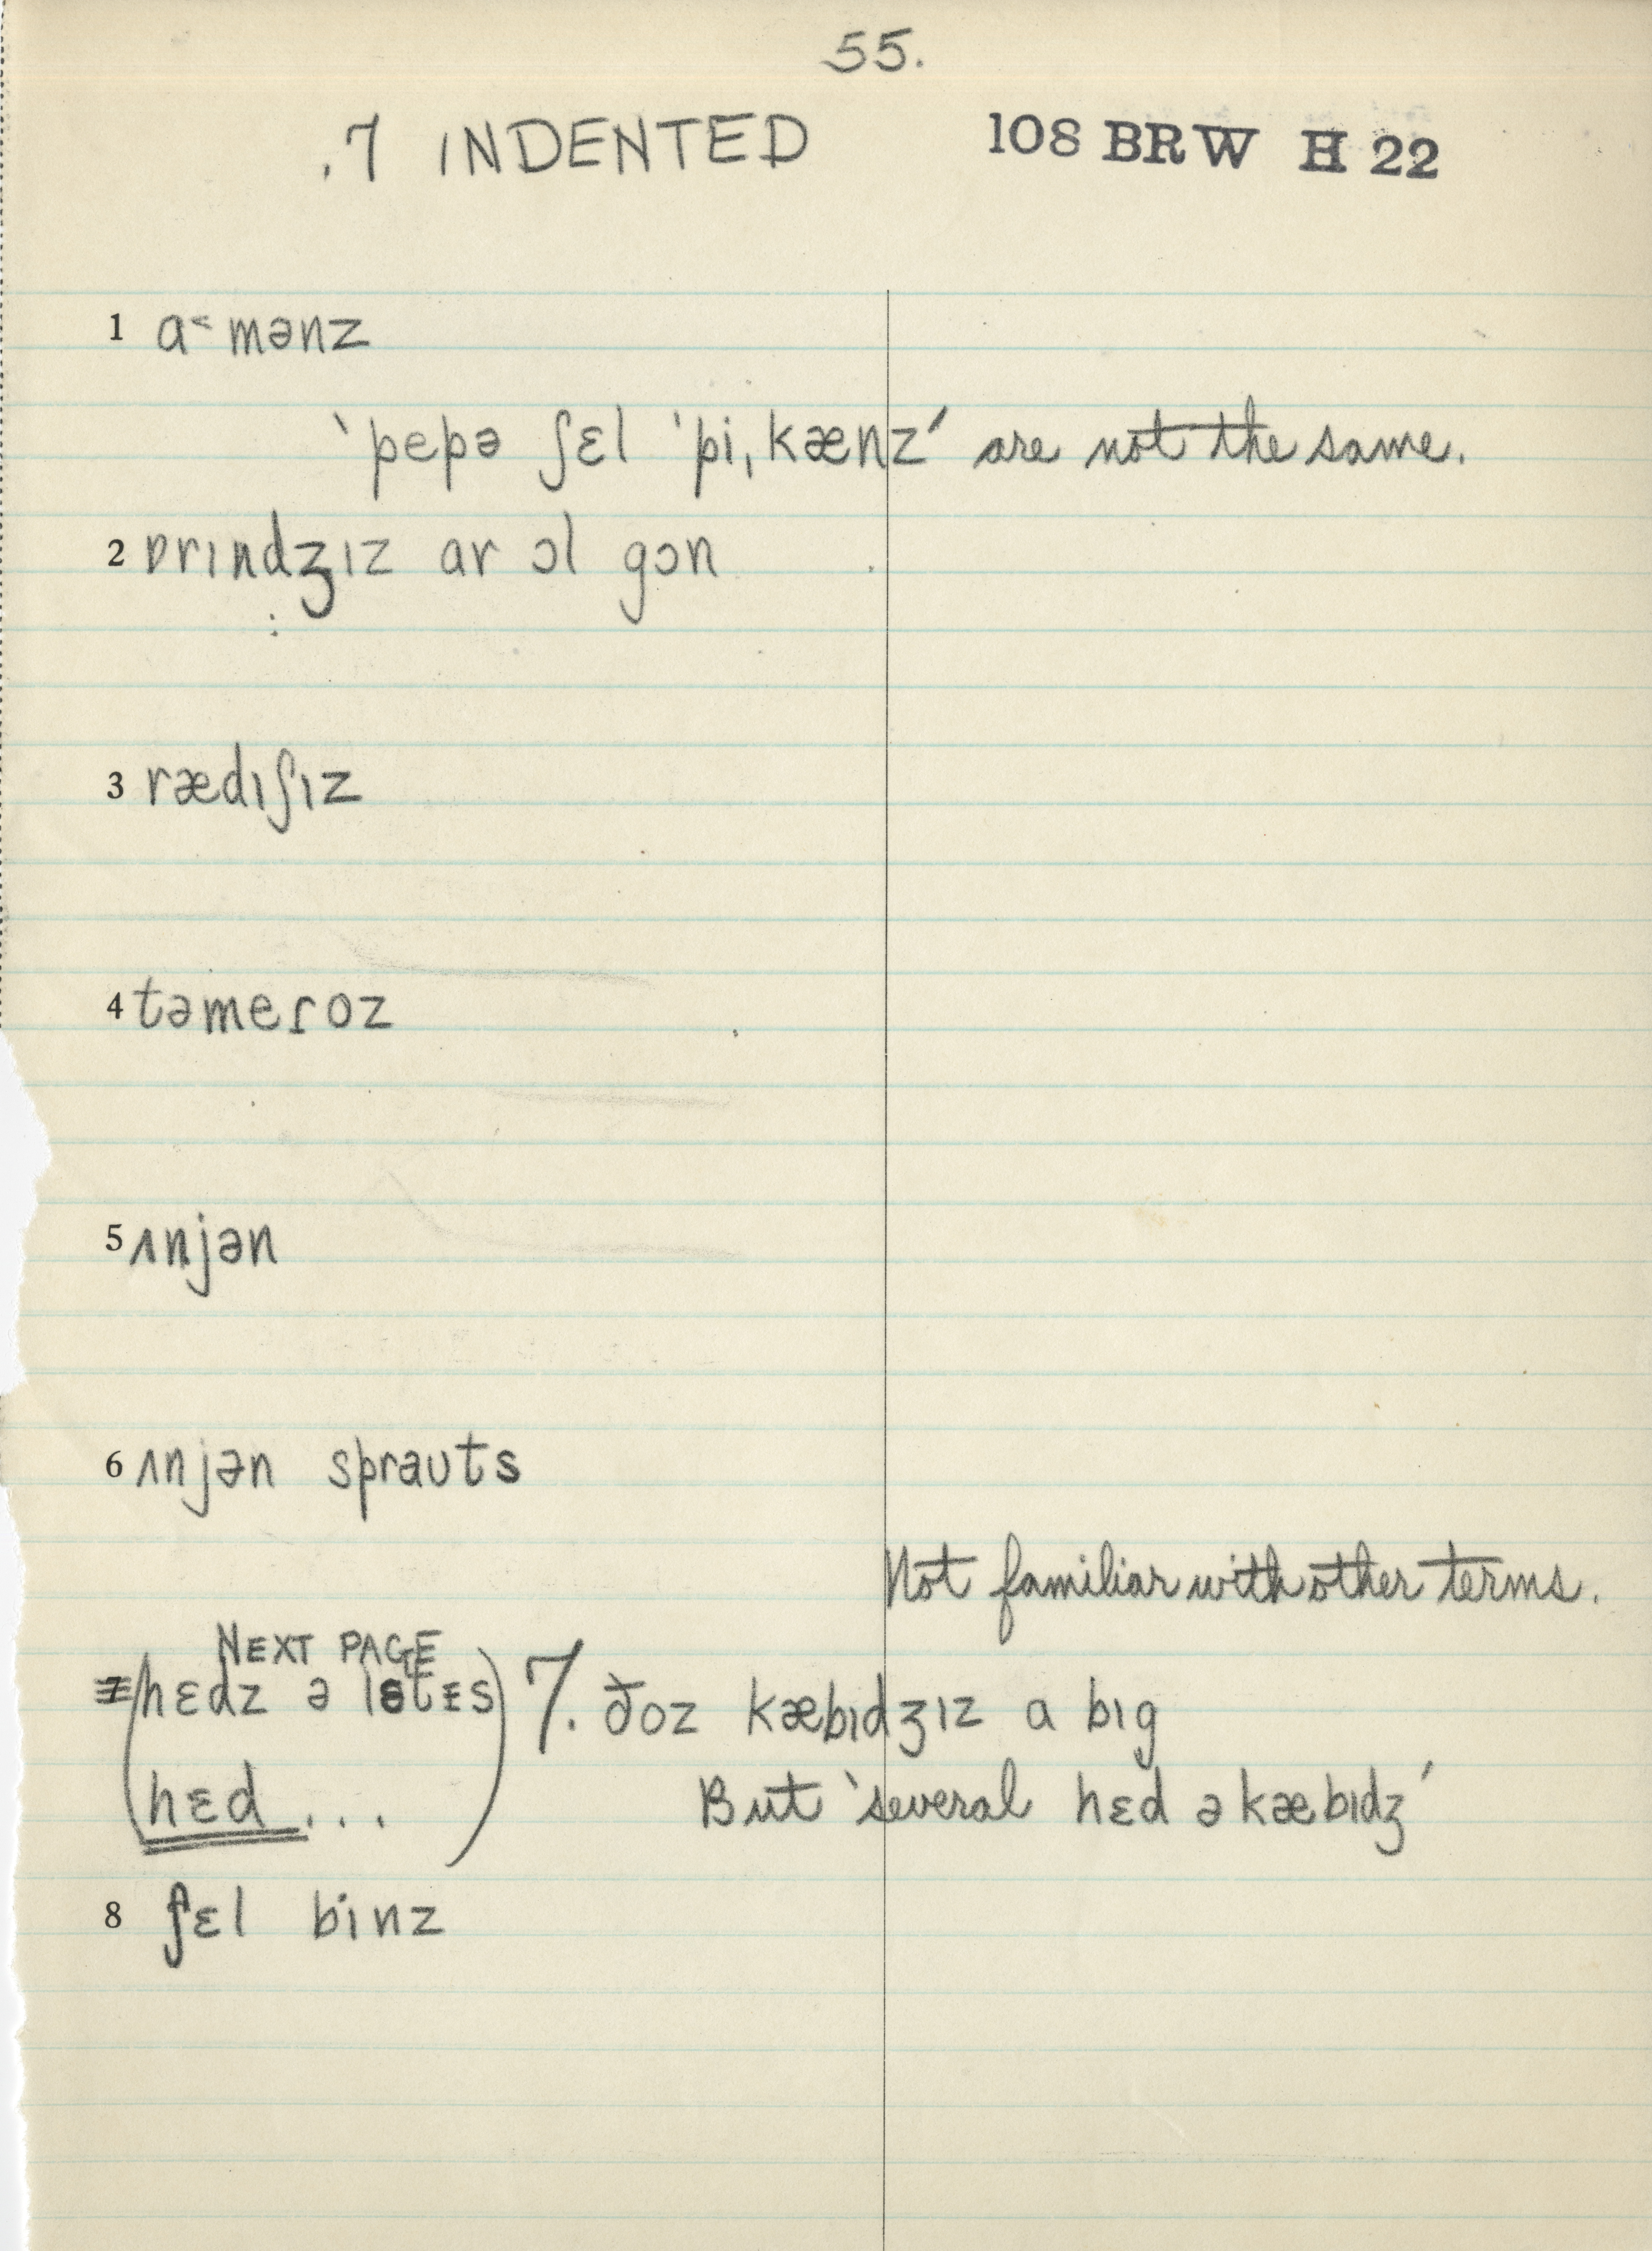 55.
.7 INDENTED 108 BRW H 22
1 ɑ˂mənz
‵pepə ʃɛl ˈpiˌkænz′ are not the same.
2 ɒrɪndʒɪz ɑr ɔl gɔn
3 rædɪʃɪz
4 təmeɾoz
5 ʌnjən
6 ʌnjən spraʊts
Not familiar with other terms.
NEXT PAGE
7 (hɛdz ə lɛtɪs 7. ðoz kæbɪdʒɪz ɑ bɪg
hɛd...) But ‵several hɛd ə kæbɪdʒ′
8 ʃɛl binz